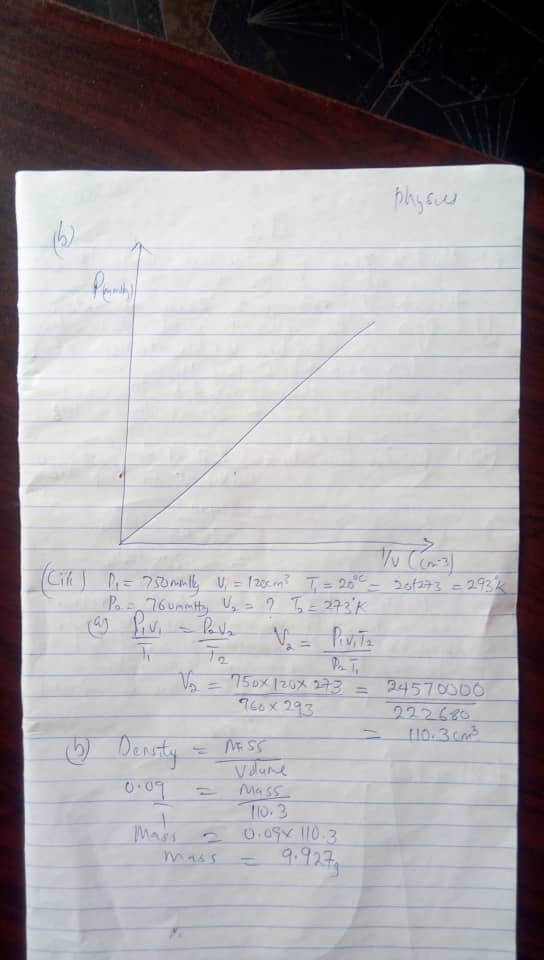 physics
(b)
P(mmHg)
1/v (cm-3)
(Ciii) P₁ = 750mmHg V₁ = 120cm³ T₁ = 20°C = 20+273 = 293°K
P₂ = 760mmHg V₂ = ? T₂ = 273°K
(a) P₁V₁/T₁ = P₂V₂/T₂ V₂ = P₁V₁T₂/P₂T₁
V₂ = 750×120×273/760×293 = 24570000/222680
= 110.3cm³
(b) Density = Mass/Volume
0.09/1 = Mass/110.3
Mass = 0.09×110.3
Mass = 9.927g